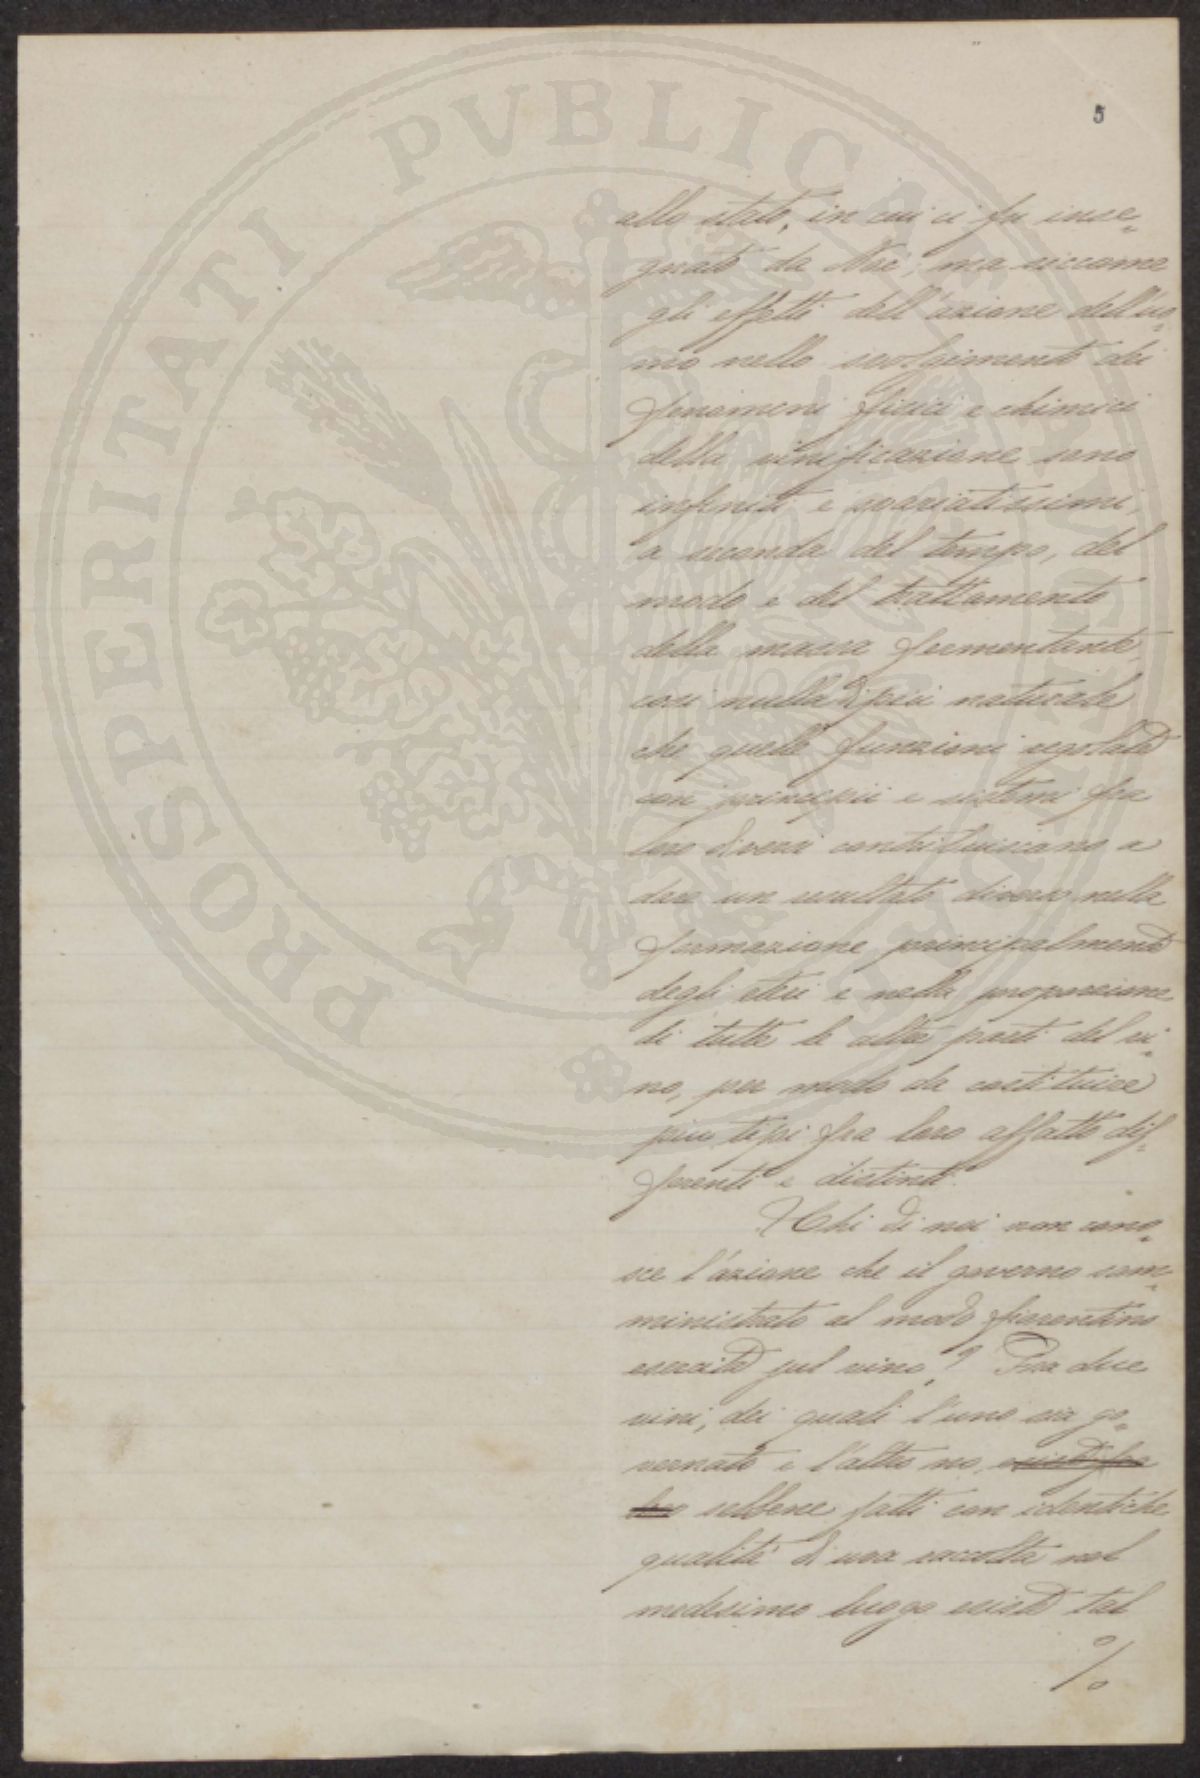 PROSPERITATI PVBLICAE AVGENDAE
5
allo stato, in cui ci fu inse=
gnato da Noè; ma siccome
gli effetti dell'azione dell'uo=
mo nello svolgimento dei
fenomeni fisici e chimici
della vinificazione sono
infiniti e svariatissimi,
a seconda del tempo, del
modo e del trattamento
della massa fermentante,
così nulla di più naturale
che quelle funzioni regolate
con principii e sistemi fra
loro diversi contribuiscano a
dare un resultato diverso nella
formazione principalmente
degli eteri e nella proporzione
di tutte le altre parti del vi=
no, per modo da costituire
più tipi fra loro affatto dif=
ferenti e distinti.
Chi di noi non cono=
sce l'azione che il governo som=
ministrato al modo fiorentino
esercita sul vino? Fra due
vini, dei quali l'uno sia go=
vernato e l'altro no, esiste fra
loro sebbene fatti con identiche
qualità di uva raccolta nel
medesimo luogo esiste tal
%